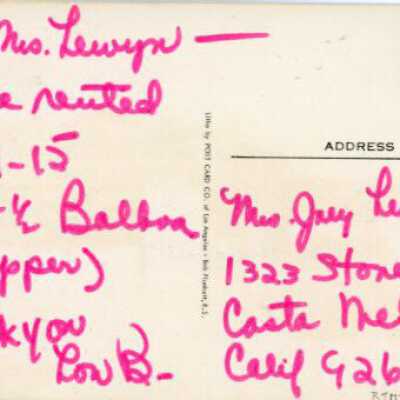 Mrs. Lewyn —
rented
-15
Balboa
pper)
k you
Lou B-
Litho by POST CARD CO. of Los Angeles - Bob Plunkett, R.S.
ADDRESS
Mrs. Joey Le
1323 Stone
Costa Me
Calif 926